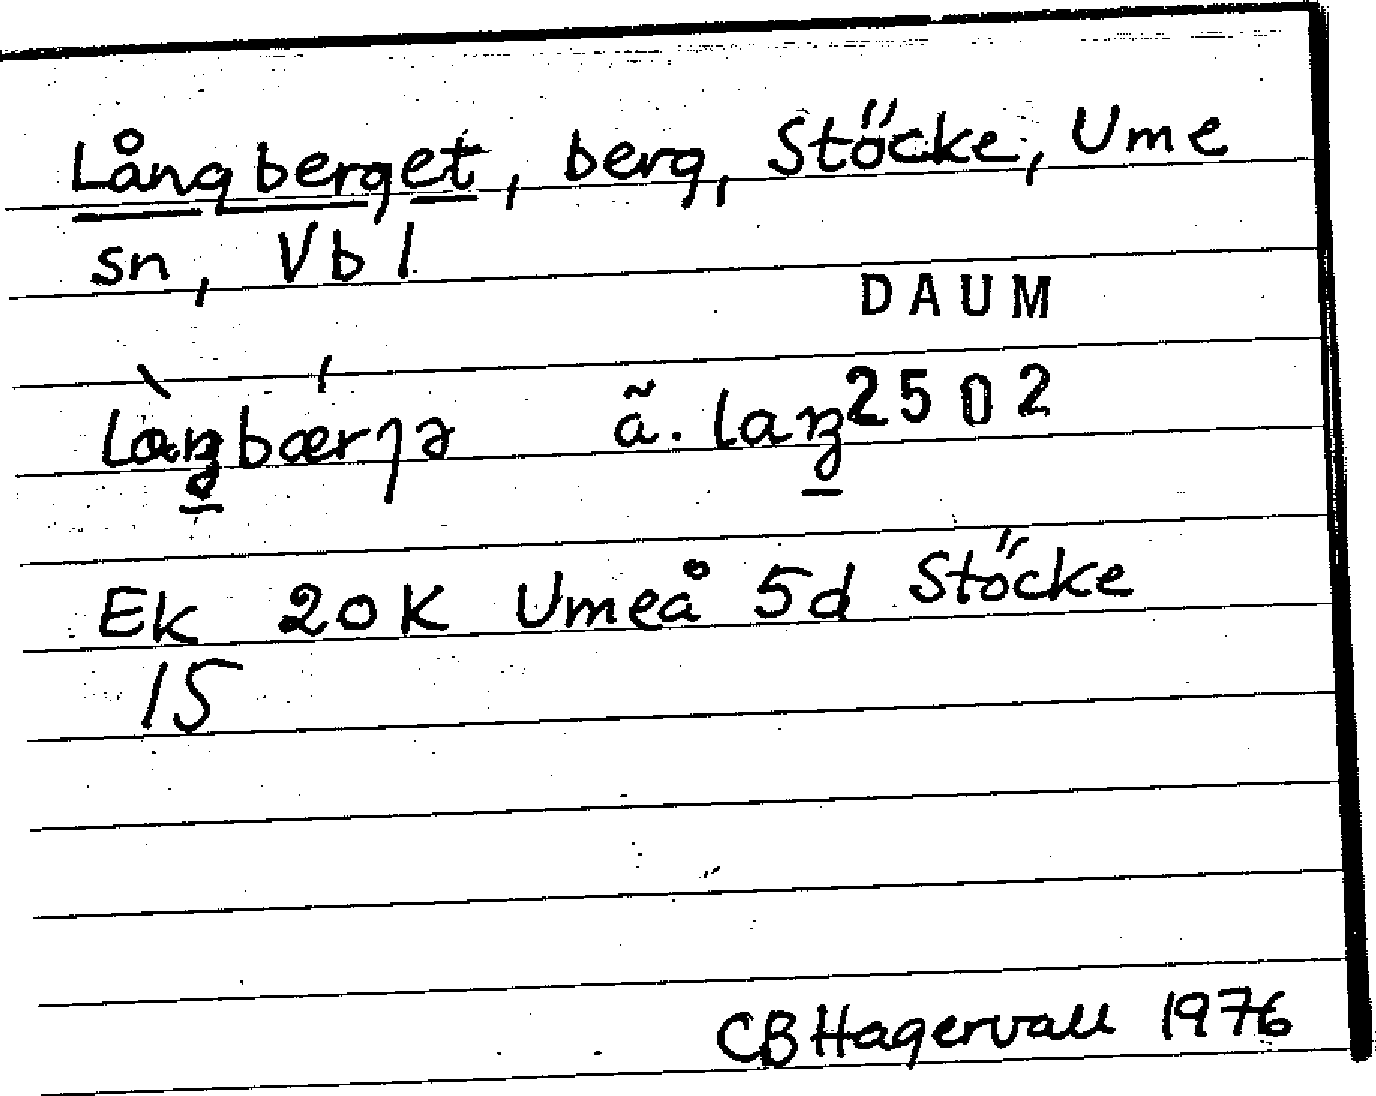 Långberget, berg, Stöcke, Ume
sn, Vbl
DAUM
2502
Ek 20K Umeå 5d Stöcke
15
CBHagervall 1976